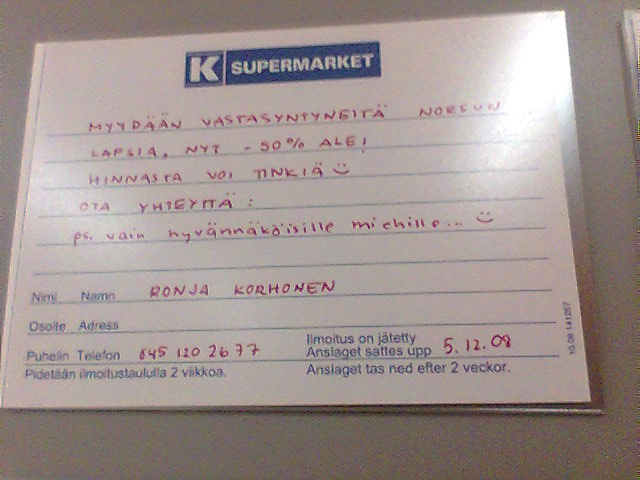 K SUPERMARKET
MYYDÄÄN VASTASYNTYNEITÄ NORSUN
LAPSIA, NYT -50% ALE!
HINNASTA VOI TINKIÄ :)
OTA YHTEYTTÄ:
ps. vain hyvännäköisille miehille... :)
Nimi Namn RONJA KORHONEN
Osoite Adress
Puhelin Telefon 045 120 2677
Ilmoitus on jätetty
Anslaget sattes upp 5.12.08
Pidetään ilmoitustaululla 2 viikkoa.
Anslaget tas ned efter 2 veckor.
10.08 141257